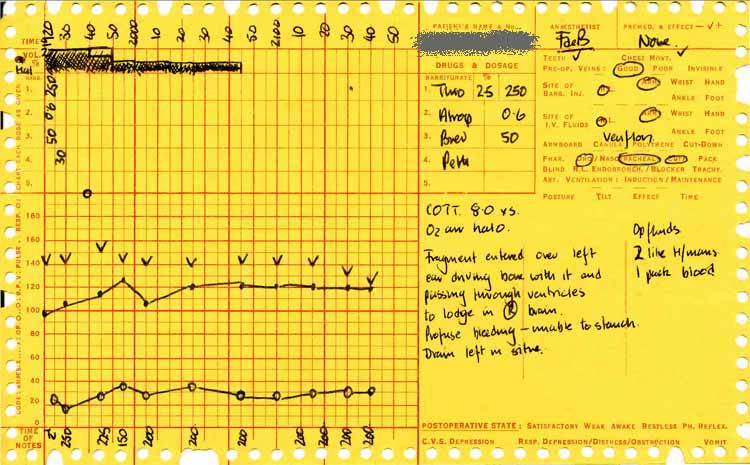 TIME 1920 30 40 50 2000 10 20 30 40 50 2100 10 20 30 40 50
VOL
PATIENT'S NAME & No.
ANAESTHETIST PREMED. & EFFECT — √ +
None
DRUGS & DOSAGE
BARBITURATE %
1. Thio 2.5 250
2. Atrop 0.6
3. Brev 50
4. Peth
5.
1.
2.
3.
4.
5.
250
0.6
50
30
TEETH CHEST MOVT.
PRE-OP. VEINS: GOOD POOR INVISIBLE
SITE OF BARB. INJ. R L ARM WRIST HAND
ANKLE FOOT
SITE OF I.V. FLUIDS R L ARM WRIST HAND
ANKLE FOOT
Venflon
ARMBOARD CANULA POLYTHENE CUT-DOWN
PHAR. ORO/NASO TRACHEAL CUFF PACK
BLIND N.L. ENDOBRONCH./BLOCKER TRACHY.
ART. VENTILATION: INDUCTION/MAINTENANCE
POSTURE TILT EFFECT TIME
COTT. 8.0 vs.
O2 air halo.
Fragment entered over left
ear driving bone with it and
passing through ventricles
to lodge in R brain.
Profuse bleeding — unable to stanch.
Drain left in situ.
Op fluids
2 litre H/mans
1 pack blood
180
160
140
120
100
80
60
40
20
0
TIME OF NOTES
250 225 150 200 200 200 200 200 200 260
POSTOPERATIVE STATE: SATISFACTORY WEAK AWAKE RESTLESS PH. REFLEX.
C.V.S. DEPRESSION RESP. DEPRESSION/DISTRESS/OBSTRUCTION VOMIT